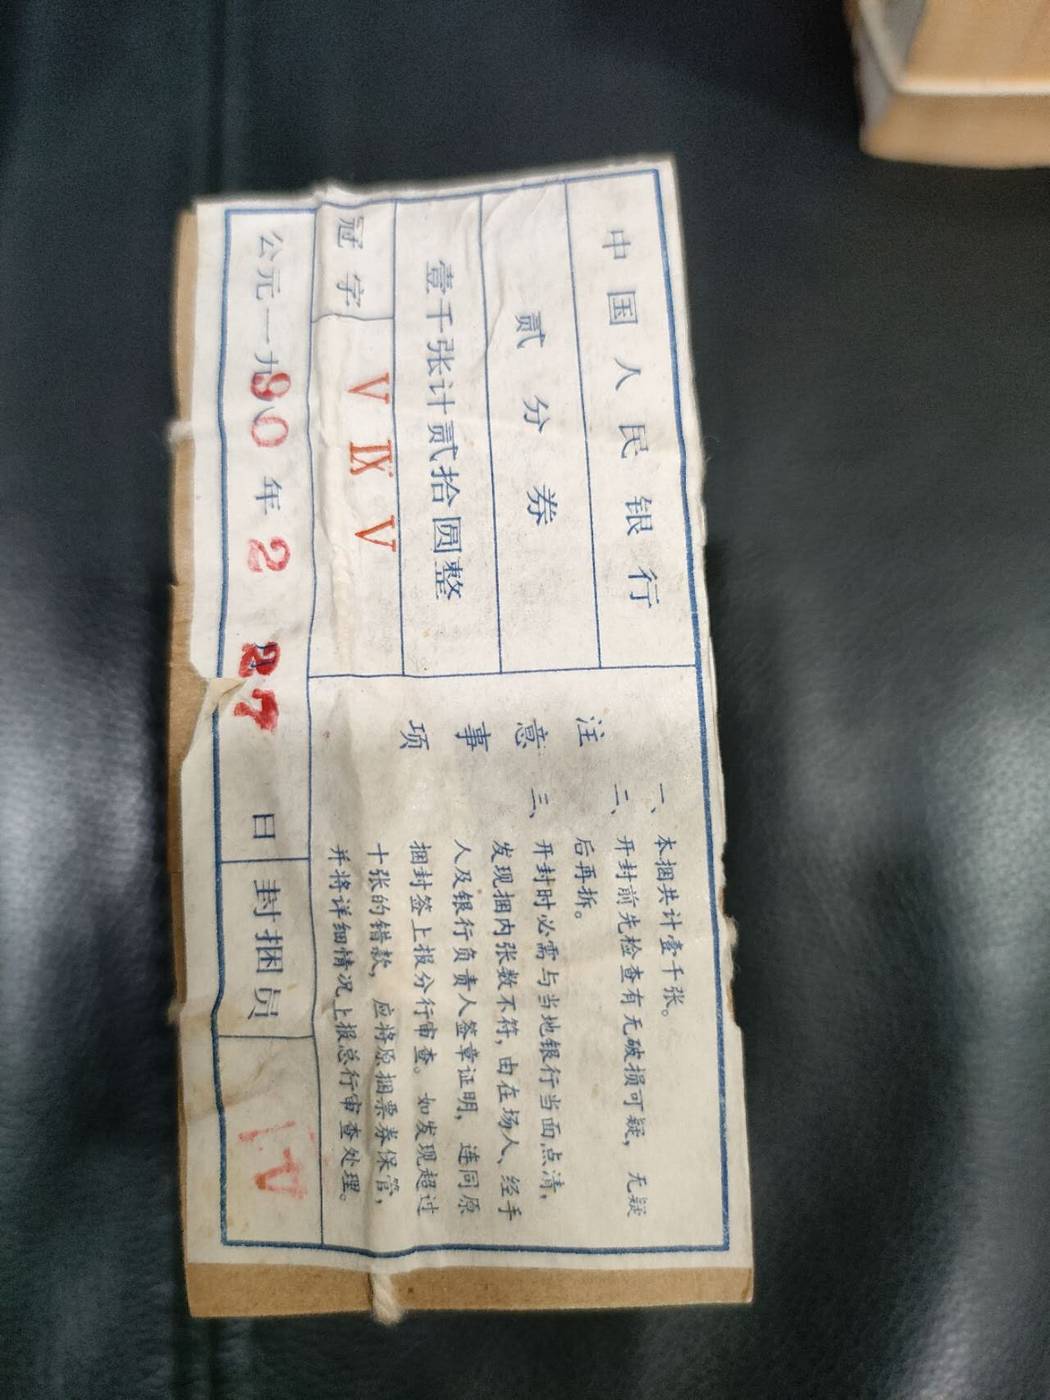 中国人民银行
贰分券
壹千张计贰拾圆整
冠字 V IX V
公元一九90年2 27日 封捆员 IV
注意事项
一、本捆共计壹千张。
二、开封前先检查有无破损可疑，无疑
后再拆。
三、开封时必需与当地银行当面点清，
发现捆内张数不符，由在场人、经手
人及银行负责人签章证明，连同原
捆封签上报分行审查。如发现超过
十张的错款，应将原捆票券保管，
并将详细情况上报总行审查处理。